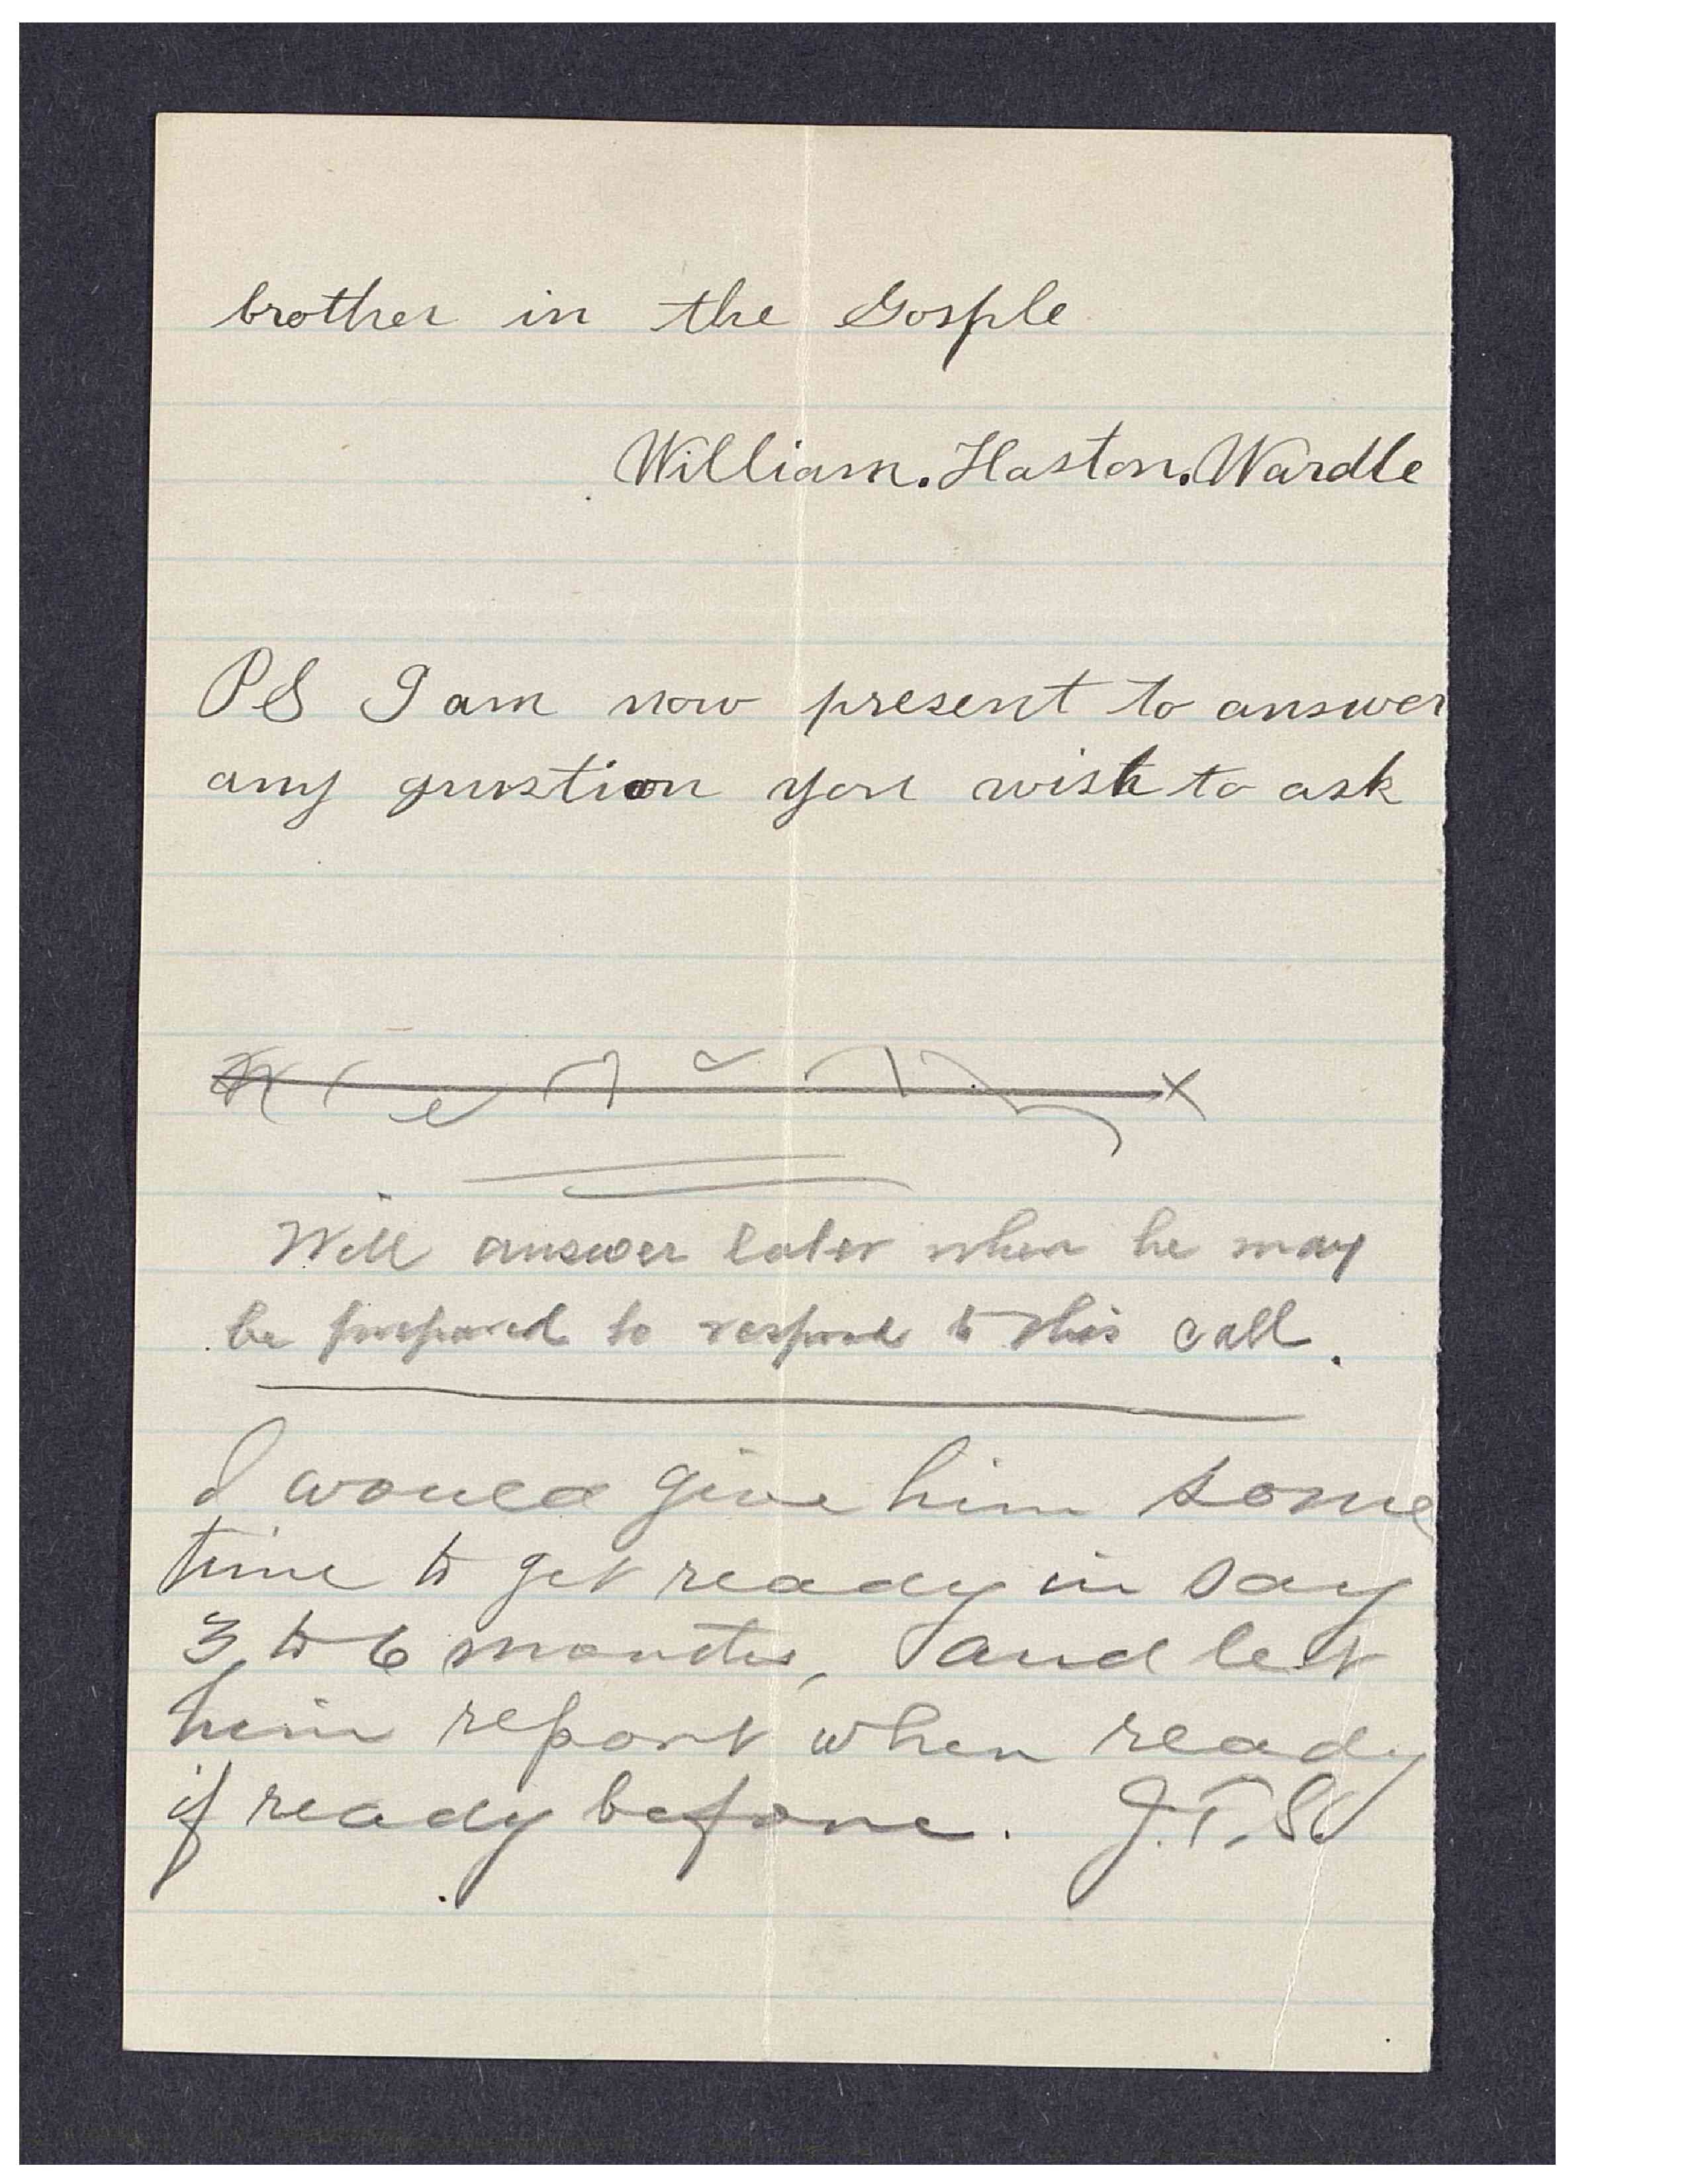 brother in the Gosple
William. Haston. Wardle
PS I am now present to answer
any qustion you wish to ask
Will answer later when he may
be prepared to respond to this call.
I would give him some
time to get ready in say
3 to 6 months, and let
him report when ready
if ready before. J.F.S.